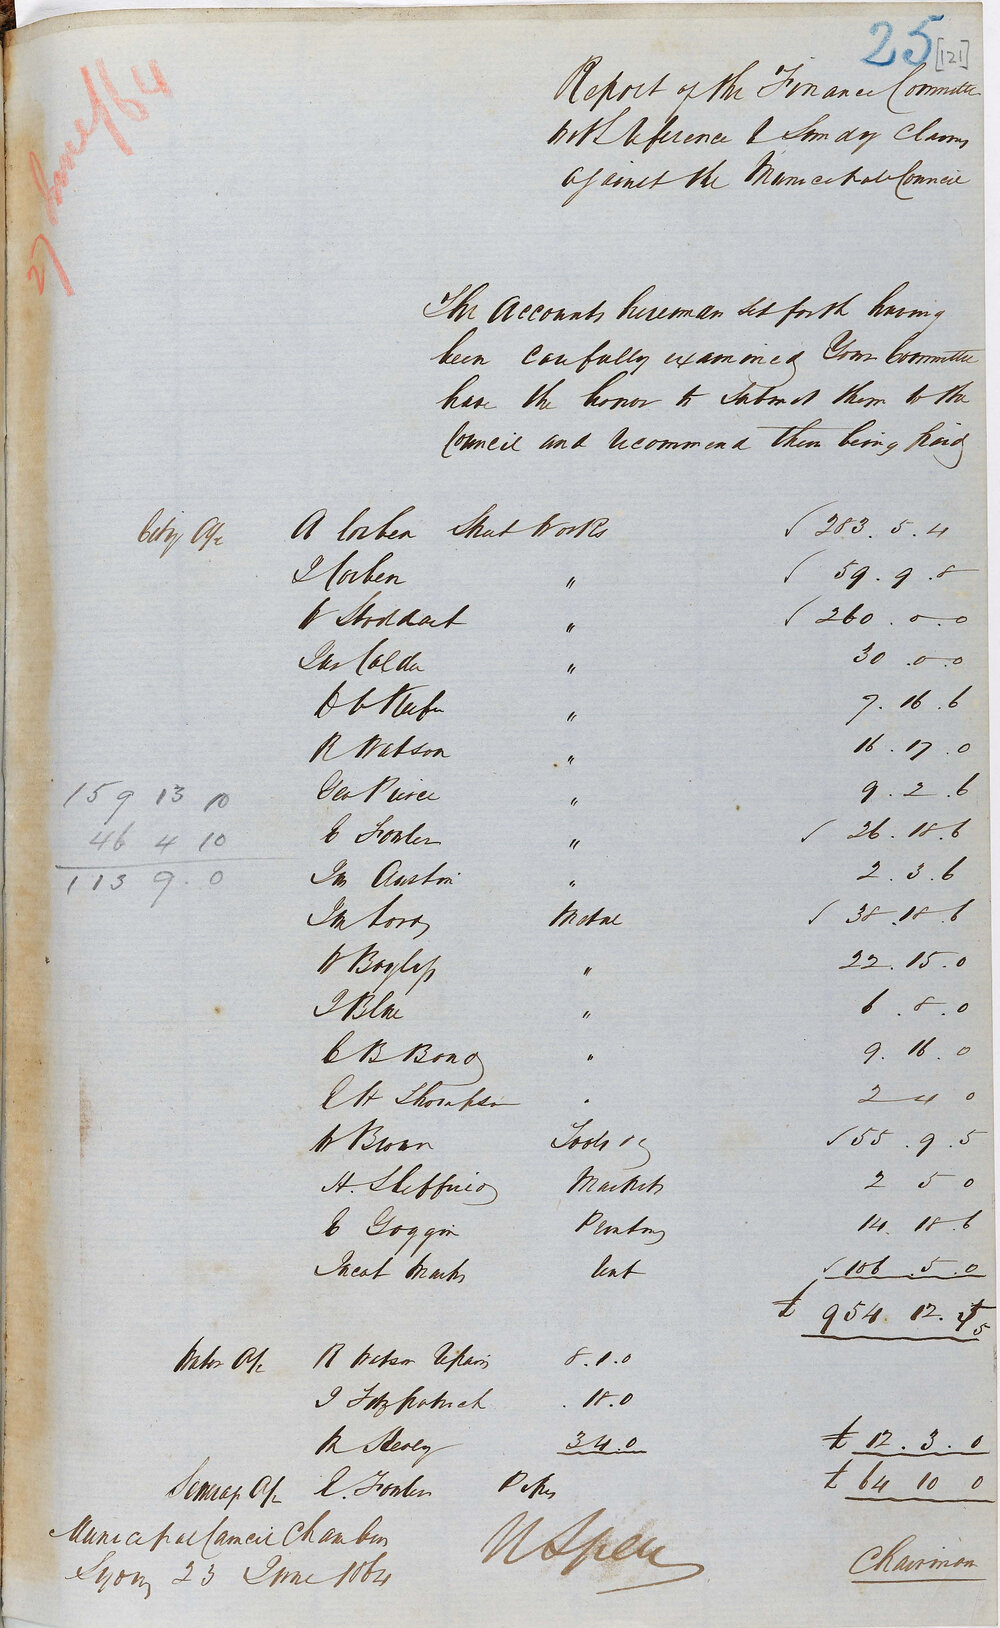 25 [121]
27 June/64
Report of the Finance Committee
with reference to Sundry Claims
against the Municipal Council
The Accounts hereinan set forth having
been carefully examined Your Committee
have the honor to submit them to the
Council and recommend them being paid
City A/c A Corben Street Works √ 283. 5. 4
J Corben " √ 59. 9. 8
W Stoddart " √ 260. 0. 0
Jas Calder " 30. 0. 0
" 7. 16. 6
R Watson " 16. 17. 0
Geo Pierce " 9. 2. 6
159 13 10
E Fowler " √ 26. 18. 6
46 4 10
Jn Austin " 2. 3. 6
113 9. 0
Jn Metal √ 38. 18. 6
W Bayliss " 22. 15. 0
J Blue " 6. 8. 0
C B Bond " 9. 16. 0
C H Thompson " 2 4 0
W Brown Tools &c √ 55. 9. 5
H. Sheffield Markets 2 5 0
E Goggin Printing 14. 18. 6
Jacob Marks Rent √ 106. 5. 0
£ 954. 12. 5
Water A/c R Watson Repairs 8. 1. 0
J Fitzpatrick . 18. 0
3 4. 0 £ 12. 3. 0
Sewerage A/c E. Fowler Pipes £ 64 10 0
Municipal Council Chambers
Sydney 23 June 1864
Chairman